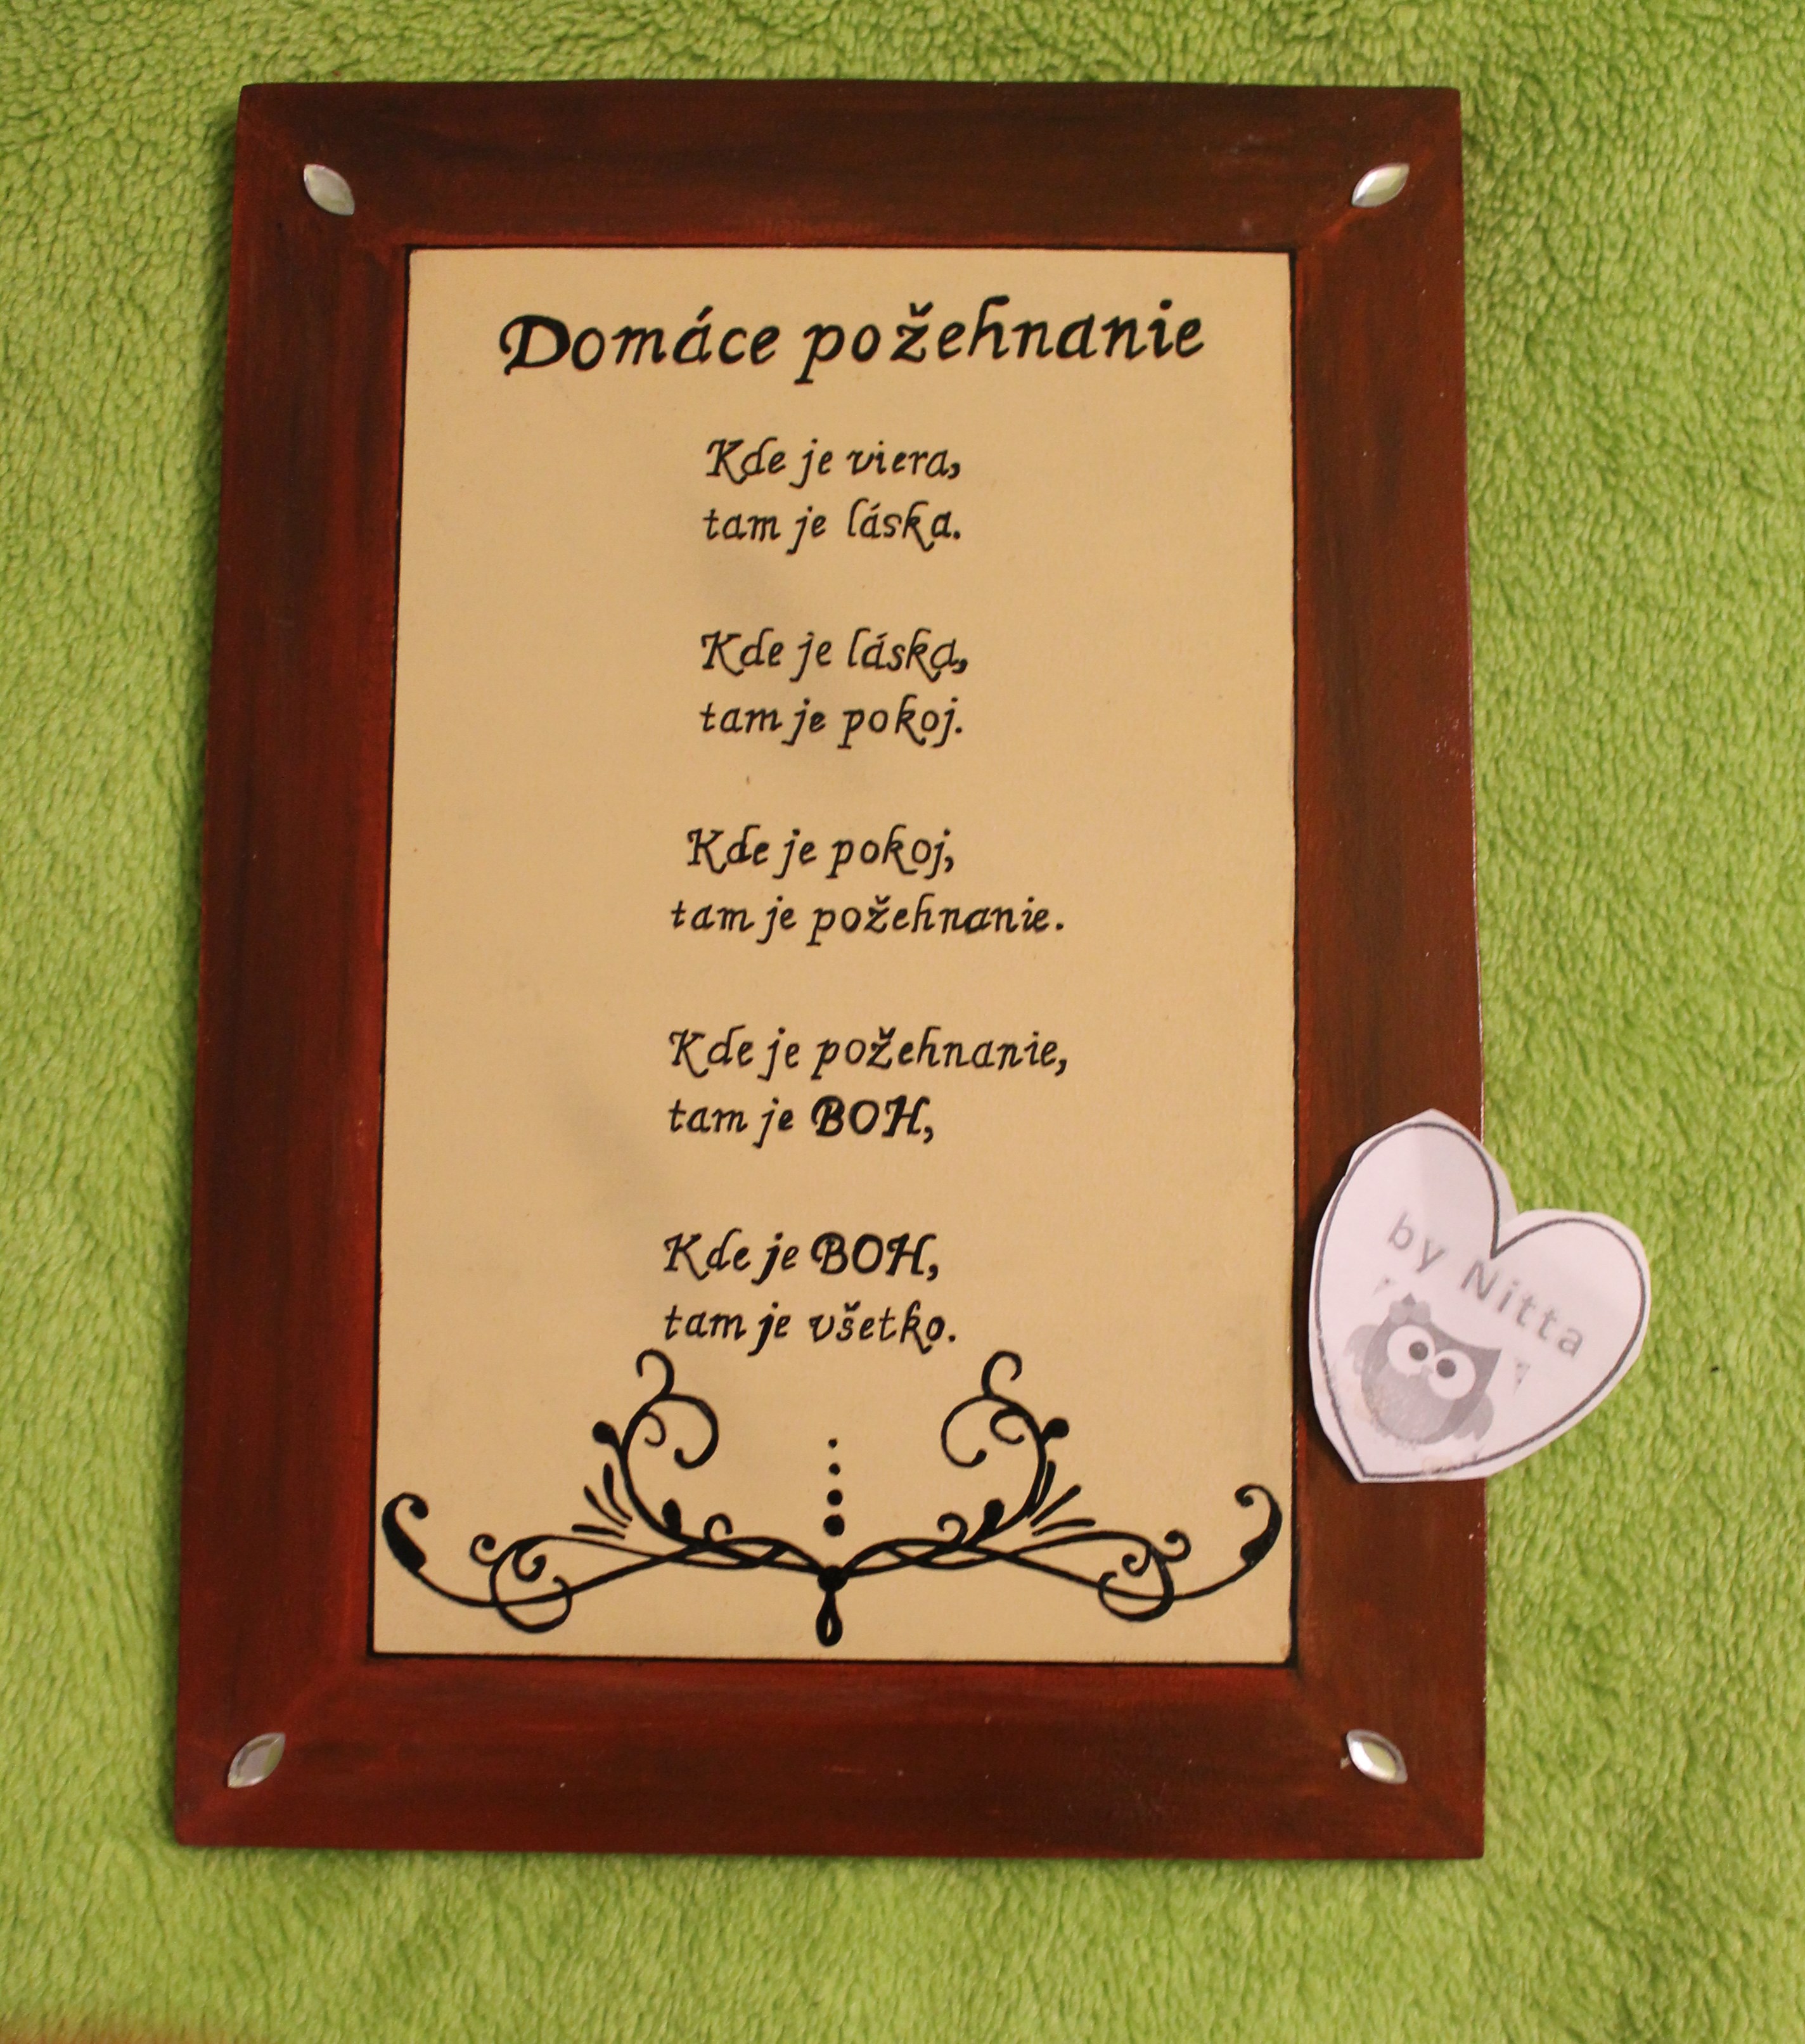 Domáce požehnanie
Kde je viera,
tam je láska.
Kde je láska,
tam je pokoj.
Kde je pokoj,
tam je požehnanie.
Kde je požehnanie,
tam je BOH,
Kde je BOH,
tam je všetko.
by Nitta